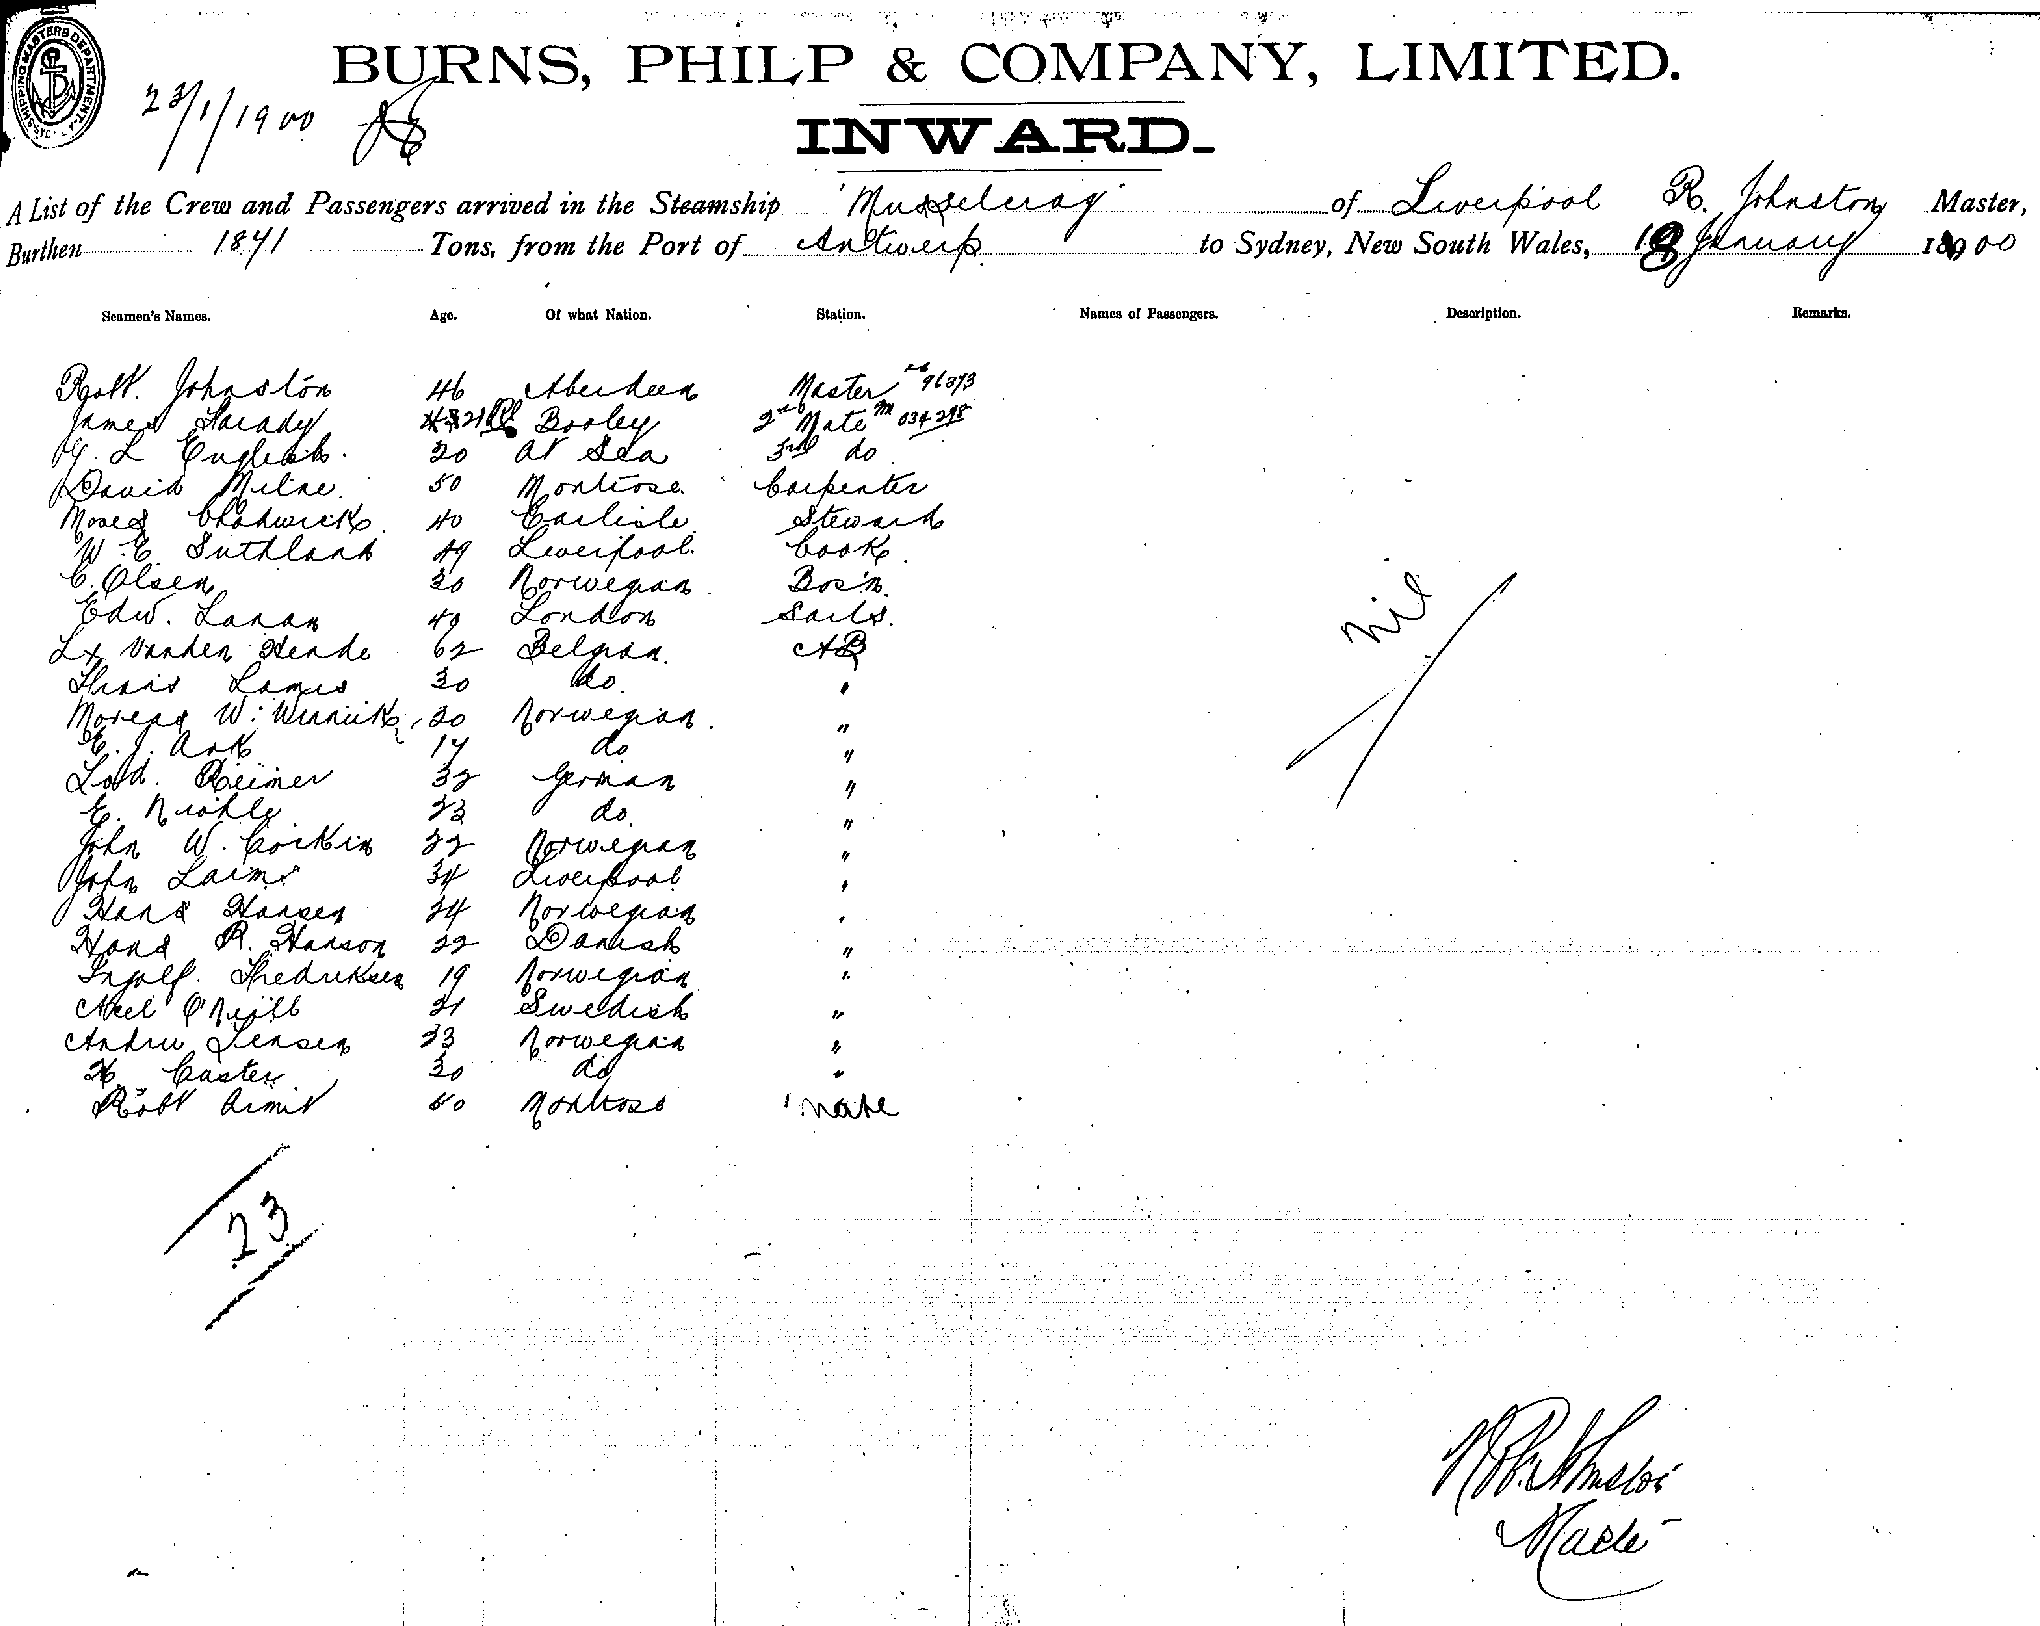 BURNS, PHILP & COMPANY, LIMITED.
23/1/1900
INWARD.
A List of the Crew and Passengers arrived in the Steamship Musselcrag of Liverpool R. Johnston Master,
Burthen 1871 Tons, from the Port of Antwerp to Sydney, New South Wales, 18 January 1900
Seamen's Names. Age. Of what Nation. Station. Names of Passengers. Description. Remarks.
Robt. Johnston 46 Aberdeen Master
James 21 2nd Mate
English 20 At Sea 3rd do
David Milne 50 Montrose Carpenter
Moses Chadwick 40 Carlisle Steward
W. E. Suthland 49 Liverpool Cook
C. Olsen 30 Norwegian Bos'n
Edw. 49 London Sails.
Vanden Hende 62 Belgian AB
30 do "
W. 20 Norwegian "
E. J. Ask 17 do "
Reimer 32 German "
E. 23 do "
John W. Corkin 22 Norwegian "
John 34 Liverpool "
Hans Hansen 24 Norwegian "
Hans R. Hanson 22 Danish "
Ingolf. Fredriksen 19 Norwegian "
21 Swedish "
Andrew Jensen 23 Norwegian "
30 do "
Robt 50 Montrose Mate
nil
23
Robt. Johnston
Master